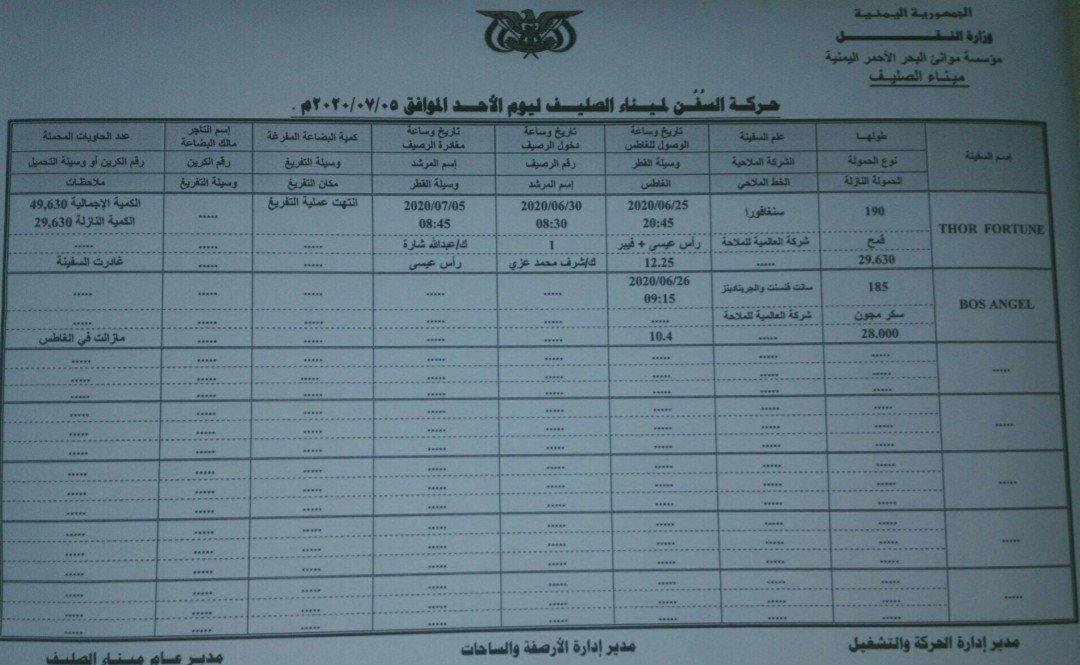 الجمهورية اليمنية
وزارة النقـــــــل
مؤسسة موانئ البحر الأحمر اليمنية
مينـاء الصليـف
حركة السُفُن لمينـاء الصليـف ليـوم الأحـد الموافق ٢٠٢٠/٠٧/٠٥م .
إسم السفينة
طولهـا
علم السفينة
تاريخ وساعة الوصول للغاطس
تاريخ وساعة دخول الرصيف
تاريخ وساعة مغادرة الرصيف
كمية البضاعة المفرغة
إسم التاجر مالك البضاعة
عدد الحاويات المحملة
نوع الحمولة
الشركة الملاحية
وسيلة القطر
رقم الرصيف
إسم المرشد
وسيلة التفريغ
رقم الكرين
رقم الكرين أو وسيلة التحميل
الحمولة النازلة
الخط الملاحي
الغاطس
إسم المرشد
وسيلة القطر
مكان التفريغ
وسيلة التفريغ
ملاحظات
THOR FORTUNE
190
سنغافورا
2020/06/25 20:45
2020/06/30 08:30
2020/07/05 08:45
انتهت عملية التفريغ
.....
الكمية الإجمالية 49,630
الكمية النازلة 29,630
قمح
شركة العالمية للملاحة
رأس عيسى + فيبر
1
ك/عبدالله شارة
.....
.....
.....
29.630
.....
12.25
ك/شرف محمد عزي
رأس عيسى
.....
.....
غادرت السفينة
BOS ANGEL
185
سانت فنسنت والجرينادينز
2020/06/26 09:15
.....
.....
.....
.....
.....
سكر مجون
شركة العالمية للملاحة
.....
.....
.....
.....
.....
.....
28.000
.....
10.4
.....
.....
.....
.....
مازالت في الغاطس
مدير إدارة الحركة والتشغيل
مدير إدارة الأرصفة والساحات
مدير عـام مينـاء الصليف